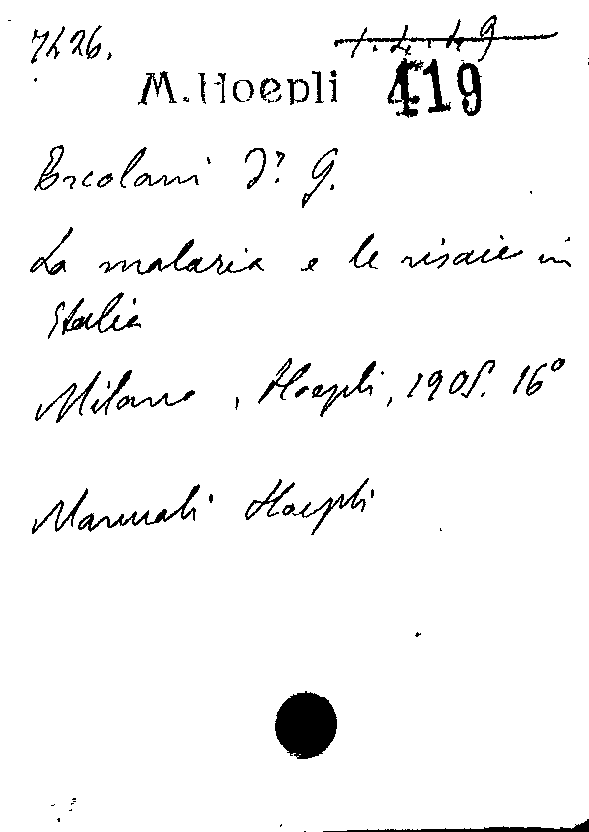 7426. 1.4.4.9
M. Hoepli 419
Ercolani Dr. G.
La malaria e le risaie in
Italia
Milano, Hoepli, 1905. 16°
Manuali Hoepli